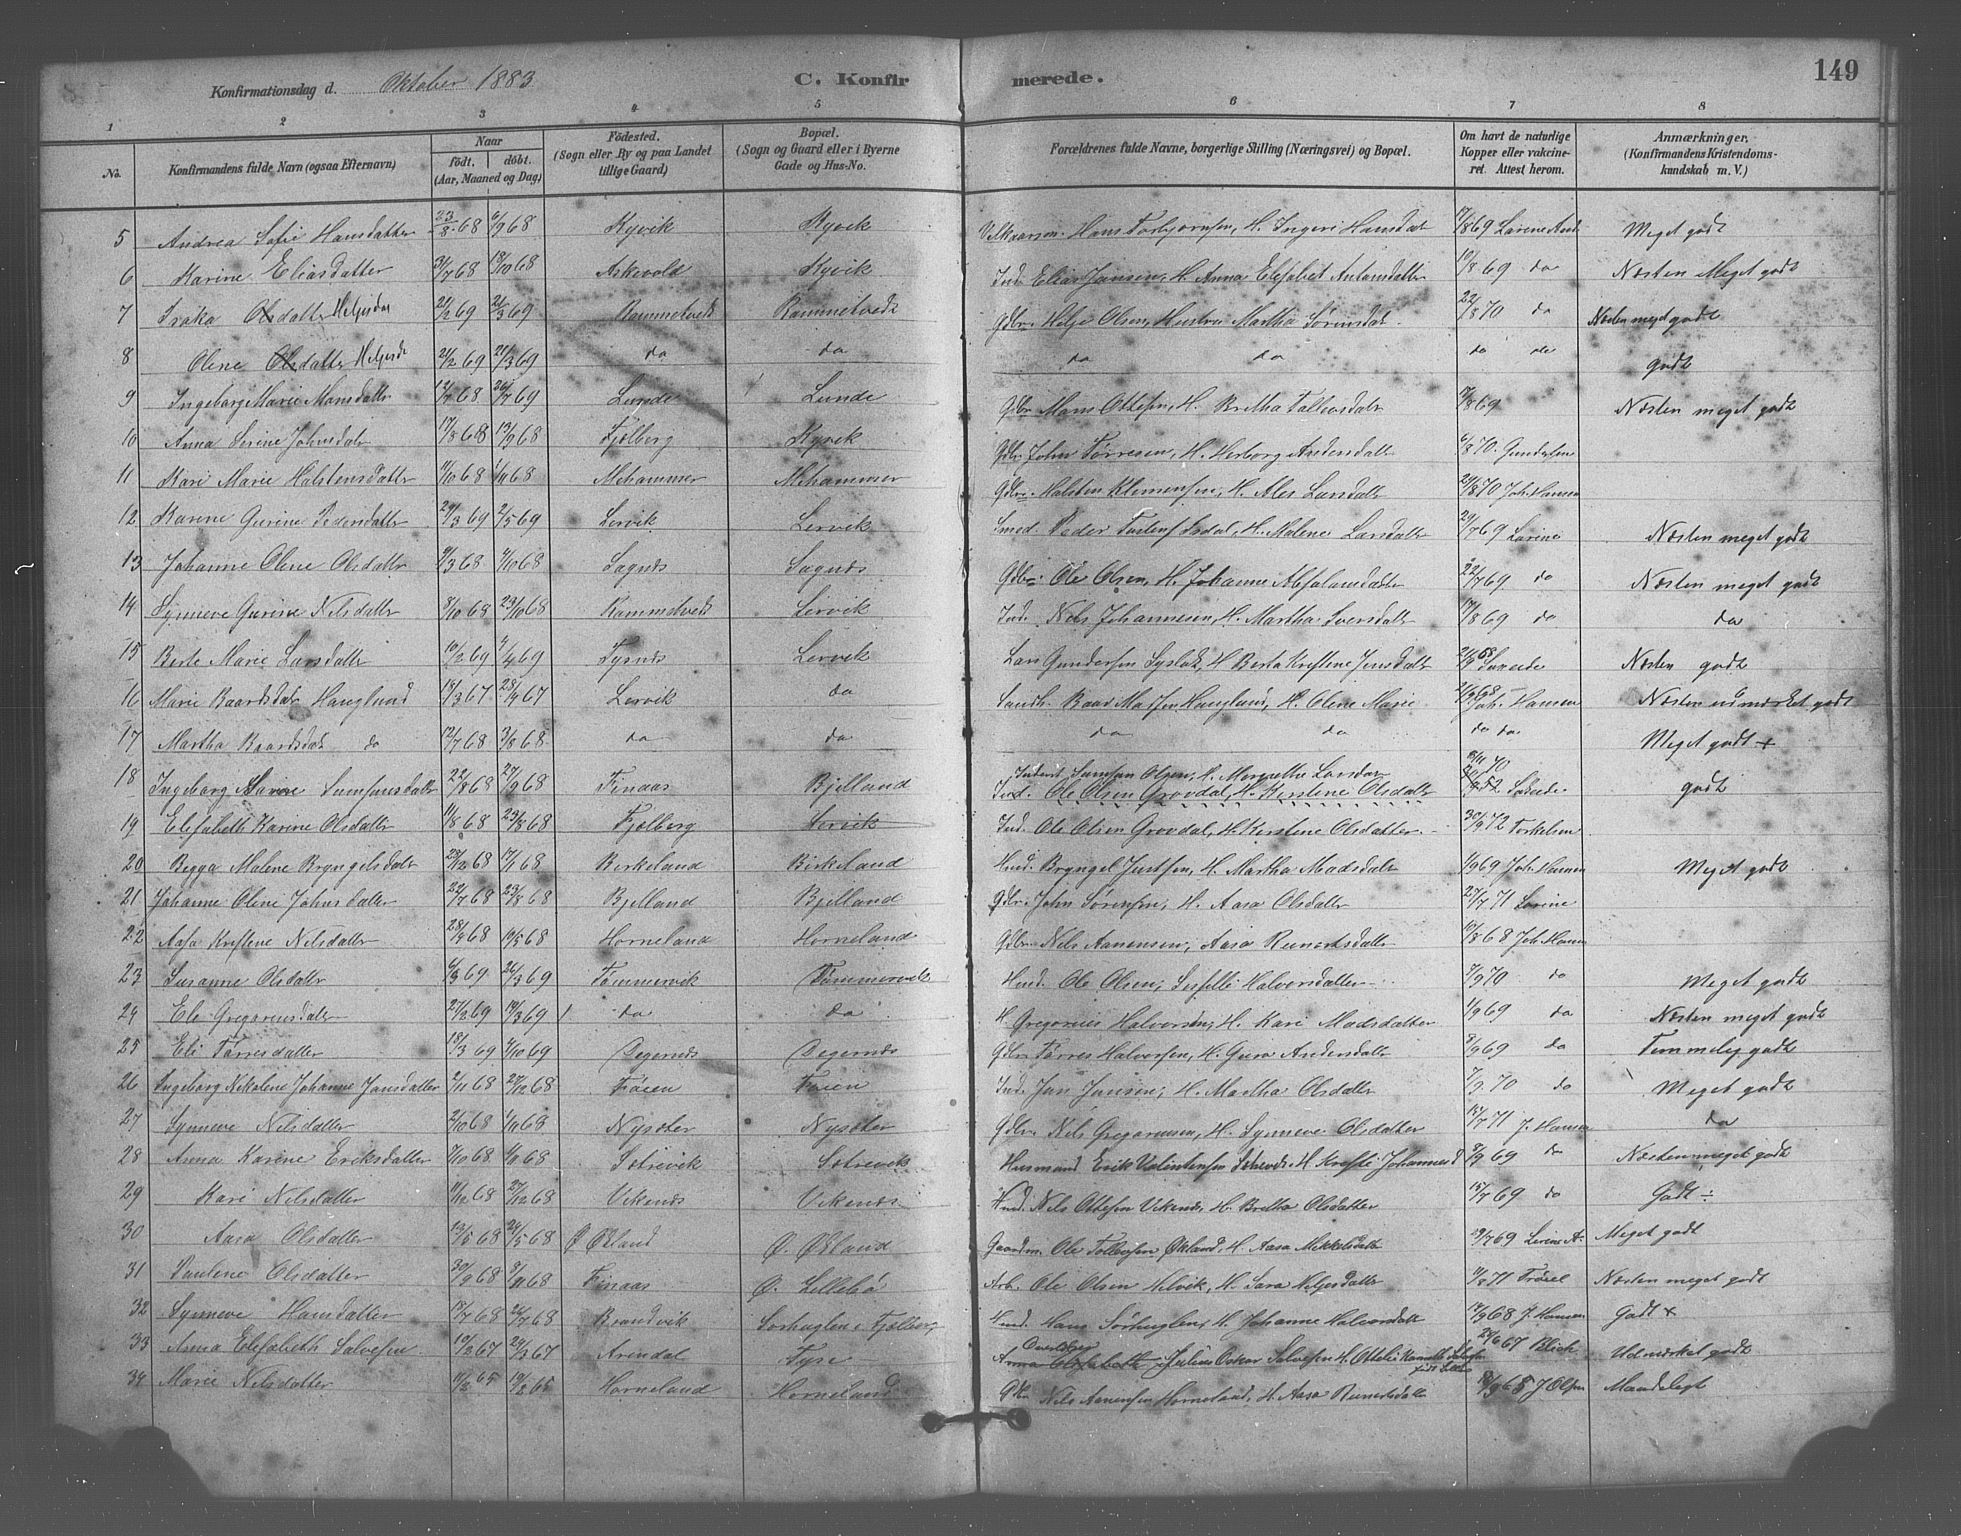 149
Konfirmationsdag d. Oktober 1883 C. Konfirmerede.
1 2 3 4 5 6 7 8
No. Konfirmandens fulde Navn (ogsaa Efternavn) Naar født, døbt. (Aar, Maaned og Dag) Fødested. (Sogn eller By og paa Landet tillige Gaard) Bopæl. (Sogn og Gaard eller i Byerne Gade og Hus-No. Forældrenes fulde Navne, borgerlige Stilling (Næringsvei) og Bopæl. Om havt de naturlige Kopper eller vaccineret. Attest herom. Anmærkninger, (Konfirmandens Kristendomskundskab m. V.)
5 Andrea Sofie Hansdatter 23/8 68 6/9 68 Kyvik Kyvik Hans Torbjørnsen, H. Ingeri Hansdat 17/8 69 Meget godt
6 Karine Eliasdatter 31/7 68 18/10 68 Askevold Kyvik Ind. Elias Jansen, H. Anna Elesabet Antonsdatter 10/8 69 do Næsten Meget godt
7 Olsdatter Helgesdat 21/2 69 21/3 69 Rammetveds Rammetveds Gdbr. Helje Olsen, Hustru Martha Sørensdat 22/8 70 do Næsten meget godt
8 Olene Olsdatter Heljesd 21/2 69 21/3 69 do do do do do do godt
9 Ingeborg Marie Monsdatter 12/7 68 26/7 69 Lunde Lunde Gdbr Mons Ottesen, H. Bretha 17/8 69 Næsten meget godt
10 Anna Serine Johnsdatr 17/8 68 13/9 68 Fjelberg Kyvik Gdbr John Tørresen, H. Herborg Andersdatter 6/8 70. Gundersen
11 Kari Marie Halstensdatter 11/10 68 1/11 68 Mehammer Mehammer Gdbr. Halsten Klemensen, H. Ales Larsdatter 21/8 70 Joh. Hansen
12 Karine Gurine Pedersdatter 29/3 69 2/5 69 Lervik Lervik Smed. Peder H. Malene Larsdatter 29/7 69 Lorine Næsten meget godt
13 Johanne Oline Olsdatter 9/3 68 4/10 68 Sagnds Sagnds Gdbr. Ole Olsen, H. Johanne Absalonsdatter 22/7 69. do Næsten meget godt
14 Synneve Gurine Nilsdatter 8/10 68 23/10 68 Rammetveds Lervik Ind. Nils Johannesen, H. Martha Iversdatr 17/8 69 do do
15 Berte Marie Larsdatter 10/2 69 4/4 69 Tysnds Lervik Lars Gundersen H. Berta Kristene Jensdatr Næsten godt
16 Marie Baardsdatr Hauglund 18/3 67 28/4 67 Lervik do Baar Hauglund, H. Olene Marie Joh. Hansen Næsten udmærket godt
17 Martha Baardsdat do 12/7 68 3/8 68 do do do do do do Meget godt +
18 Ingeborg Marine Samsonsdatr 22/8 68 27/9 68 Finaas Bjelland Inderst Samson Olsen, H. Margrethe Larsdat 18/11 70
Ind. Ole Olsen Grovdal, H. Kerstene Olsdatr godt
19 Elesabeth Karine Olsdatter 1/8 68 23/8 68 Fjelberg Lervik Ind. Ole Olsen Grovdal, H. Kerstene Olsdatter 30/9 72 Torkelsen
20 Begga Malene Bryngelsdatr 28/12 68 17/1 68 Birkeland Birkeland Hmd. Bryngel Justsen, H. Martha Madsdatr 1/9 69 Joh. Hansen Meget godt
21 Johanne Oline Johnsdatter 22/7 68 23/8 68 Bjelland Bjelland Gdbr. John Sørensen, H. Aasa Olsdatter 27/7 71 Lorine
22 Aasa Kristene Nilsdatter 28/4 68 10/5 68 Horneland Horneland Gdbr. Nils Aanensen, Aasa Runertsdatter 10/8 68 Joh. Hansen
23 Susanne Olsdatter 6/3 69 26/3 69 Tømmervik Tømmervik Hmd. Ole Olsen, Halvorsdatter 7/9 70 do Meget godt
24 Eli Gregoriusdatr 27/2 69 19/3 69 do do H. Gregorius Halvorsen, H. Kari Madsdatter 1/9 69 do Næsten meget godt
25 Eli Tørresdatter 18/3 69 4/10 69 Degernds Degernds Gdbr Tørres Halvorsen, H. Guro Andersdatter 8/9 69 do Temmelig godt
26 Ingeborg Nikoline Johanne Jansdatter 2/11 68 27/12 68 Føien Føien Ind. Jan Jansen, H. Martha Olsdatter 7/9 70 do Meget godt
27 Synneve Nilsdatter 2/10 68 1/11 68 Nysæter Nysæter Gdbr. Nils Gregoriusen, H. Synneve Olsdatter 15/7 71 J. Hansen do
28 Anna Karine Eriksdatter 7/10 68 1/11 68 Sætrevik Sætrevik Husmand Erik Valentinsen H. Kristi Johannesd 8/9 69 do Næsten meget godt
29 Kari Nilsdatter 11/12 68 27/12 68 Vikends Vikends Hmd. Nils Ottesen Vikends, H. Bretha Olsdatter 15/7 69 do Godt ÷
30 Aasa Olsdatter 13/5 68 24/5 68 Ø Økland Ø. Økland Gaardm. Ole Tollevsen Økland, H. Aasa Mikkelsdatter 19/7 69 Meget godt
31 Pauline Olsdatter 30/9 68 8/11 68 Finaas Ø. Lillebø Arb. Ole Olsen Helvik, H. Sara Heljesdatter 11/8 71 Næsten meget godt
32 Synneve Hansdatter 17/7 68 26/7 68 Brandvik Sørhuglen i Fjelberg Hmd. Hans Sørhuglen, H. Johanne Halvorsdatt 17/9 68 J. Hansen Godt +
33 Anna Elesabeth Salvesen 10/2 67 24/3 67 Arendal Tyse Anna Elesabeth Julius Oskar Salvesen H. Ottelie 21/6 67 Blich Udmærket godt
34 Marie Nilsdatter 11/2 65 19/2 65 Horneland Horneland Gdbr Nils Aanensen Horneland, H. Aasa Runertsdatr 18/9 68 J Olsen Maadeligt